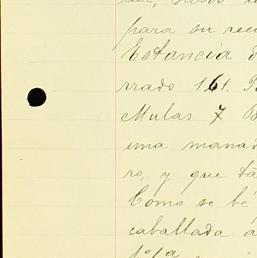 para su rec
Estancia d
rrado 161. B
Mulas 7
una manad
ro, y que
Cómo se
caballada á